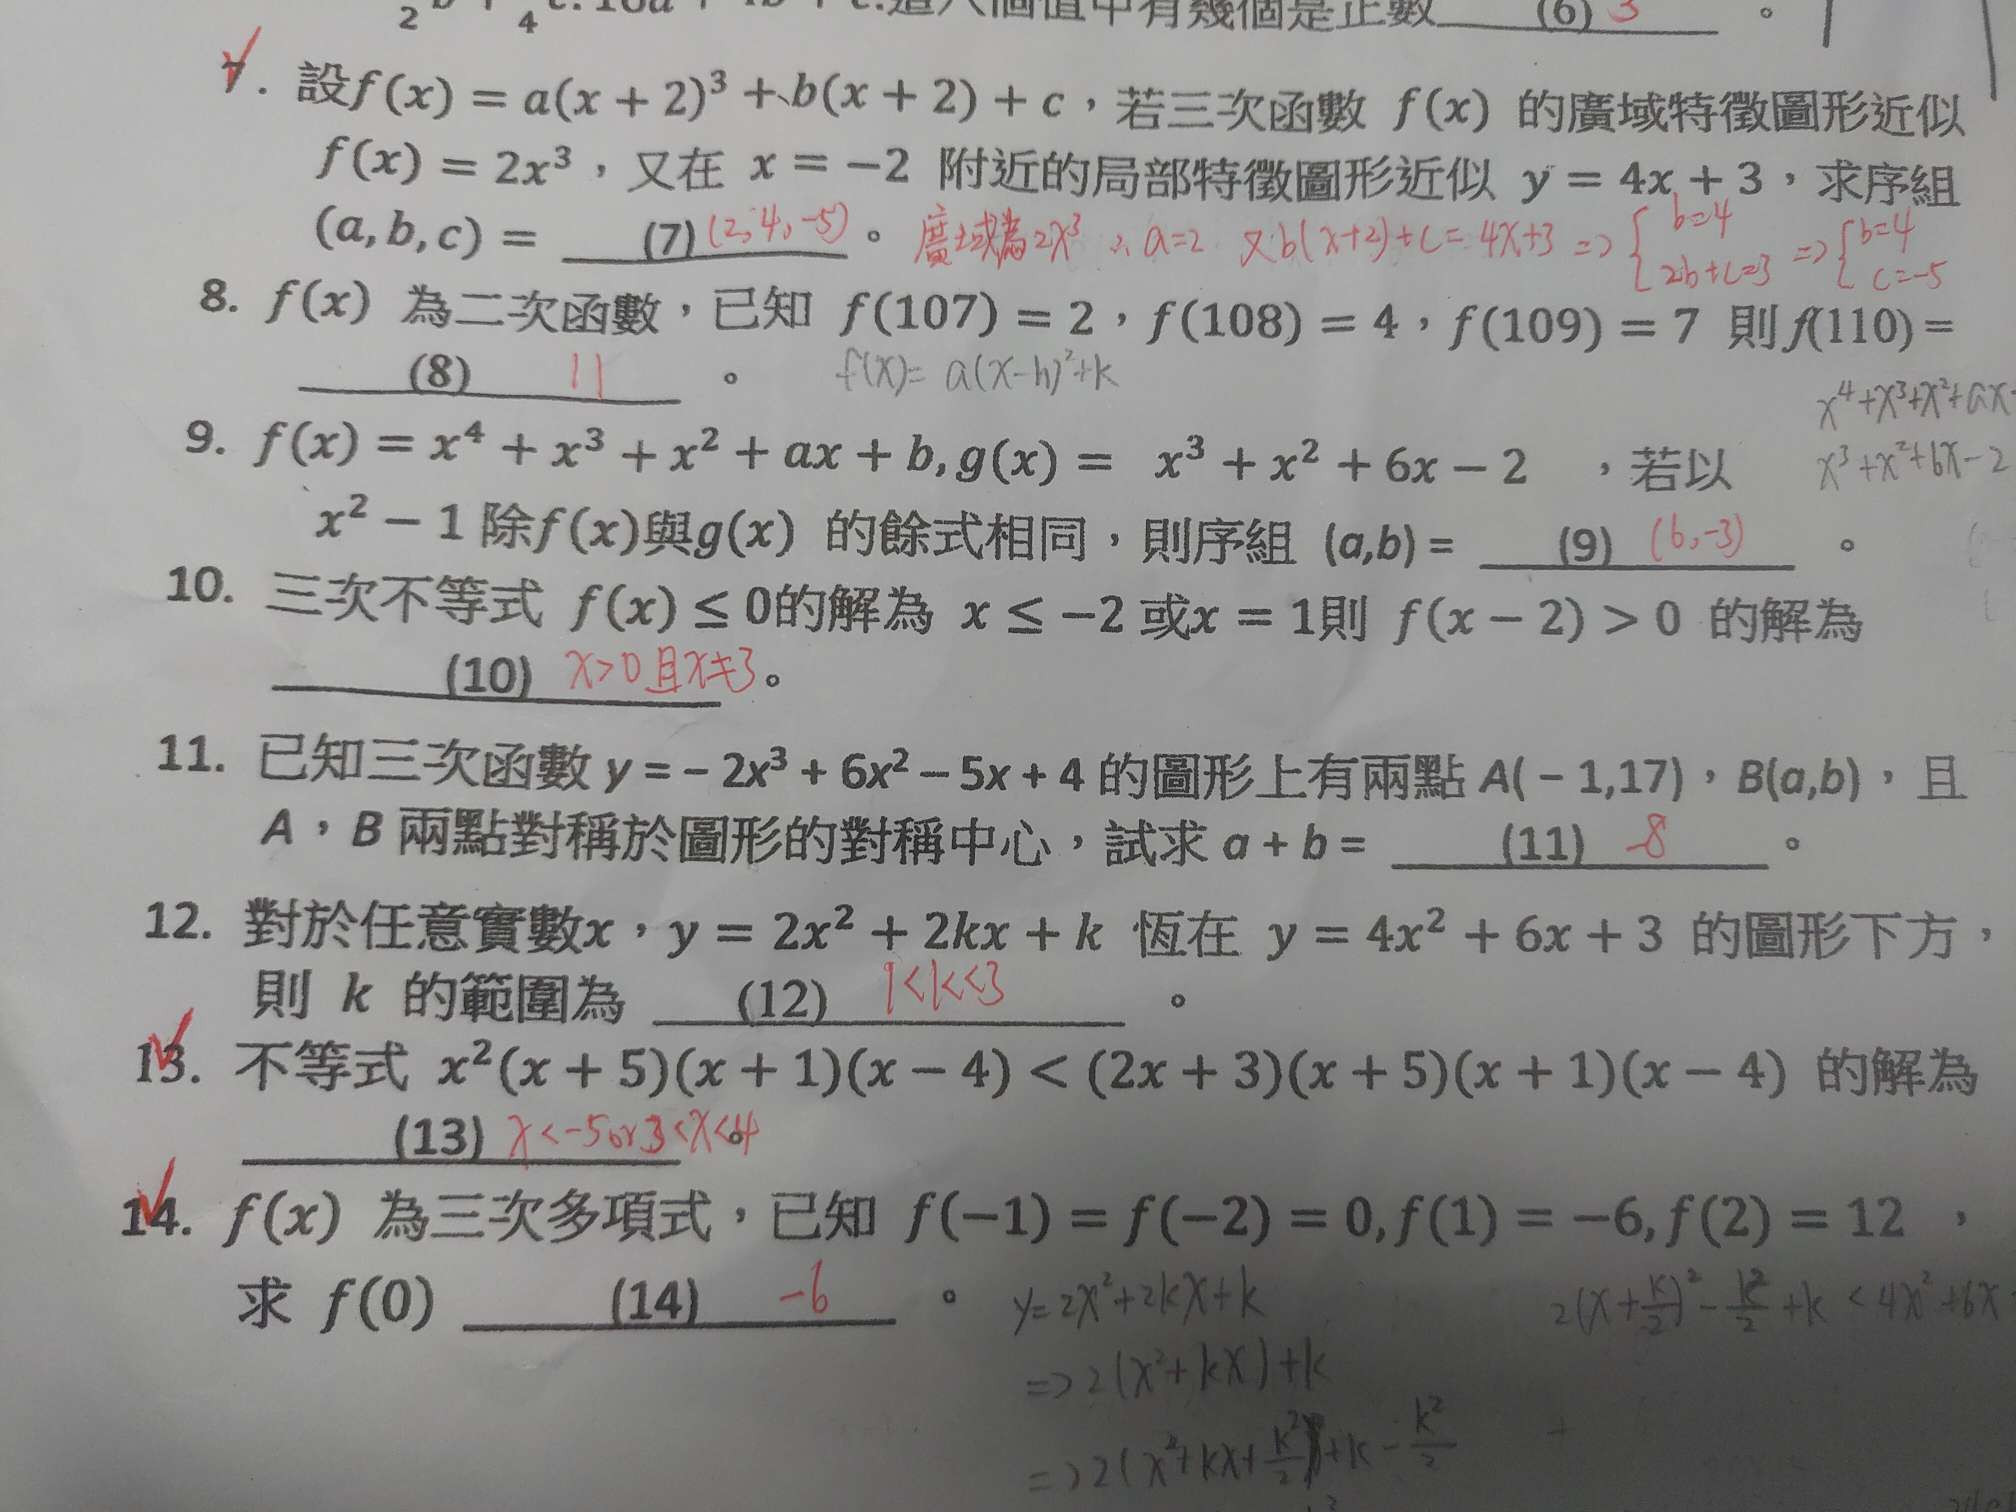 7. 設f(x) = a(x + 2)³ + b(x + 2) + c，若三次函數 f(x) 的廣域特徵圖形近似
f(x) = 2x³，又在 x = −2 附近的局部特徵圖形近似 y = 4x + 3，求序組
(a, b, c) = (7) (2, 4, -5) 。 廣域為2x³ ∴ a=2 又b(x+2)+c = 4x+3 => { b=4 2b+c=3 => { b=4 c=-5
8. f(x) 為二次函數，已知 f(107) = 2，f(108) = 4，f(109) = 7 則 f(110) =
(8) 11 。 f(x)= a(x-h)²+k
x⁴+x³+x²+ax
9. f(x) = x⁴ + x³ + x² + ax + b, g(x) = x³ + x² + 6x − 2 ，若以
x³+x²+6x-2
x² − 1 除f(x)與g(x) 的餘式相同，則序組 (a,b) = (9) (6,-3) 。
10. 三次不等式 f(x) ≤ 0的解為 x ≤ −2 或x = 1則 f(x − 2) > 0 的解為
(10) x>0 且x≠3 。
11. 已知三次函數 y = − 2x³ + 6x² − 5x + 4 的圖形上有兩點 A( − 1,17)，B(a,b)，且
A，B 兩點對稱於圖形的對稱中心，試求 a + b = (11) -8 。
12. 對於任意實數x，y = 2x² + 2kx + k 恆在 y = 4x² + 6x + 3 的圖形下方，
則 k 的範圍為 (12) 1<k<3 。
13. 不等式 x²(x + 5)(x + 1)(x − 4) < (2x + 3)(x + 5)(x + 1)(x − 4) 的解為
(13) x<-5 or 3<x<4 。
14. f(x) 為三次多項式，已知 f(−1) = f(−2) = 0, f(1) = −6, f(2) = 12 ，
求 f(0) (14) -6 。
y=2x²+2kx+k
2(x+k/2)²-k²/2+k < 4x²+6x
=> 2(x²+kx)+k
=> 2(x²+kx+k²/2)+k-k²/2